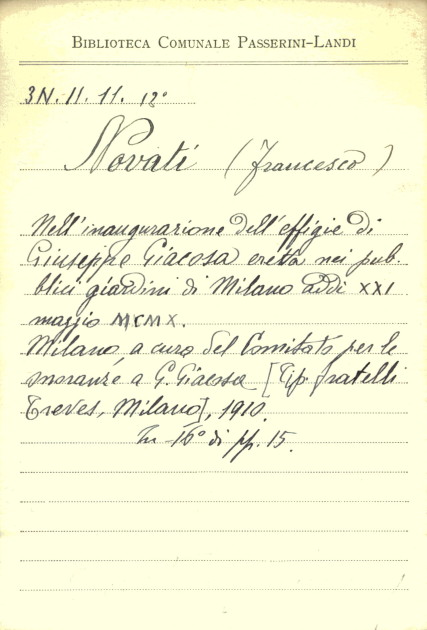 BIBLIOTECA COMUNALE PASSERINI-LANDI
3N. 11. 11. 12°
Novati (Francesco)
Nell'inaugurazione dell'effigie di
Giuseppe Giacosa eretta nei pub-
blici giardini di Milano addì XXI
maggio MCMX.
Milano, a cura del Comitato per le
onoranze a G. Giacosa [Tip. Fratelli
Treves, Milano], 1910.
In 16° di pp. 15.